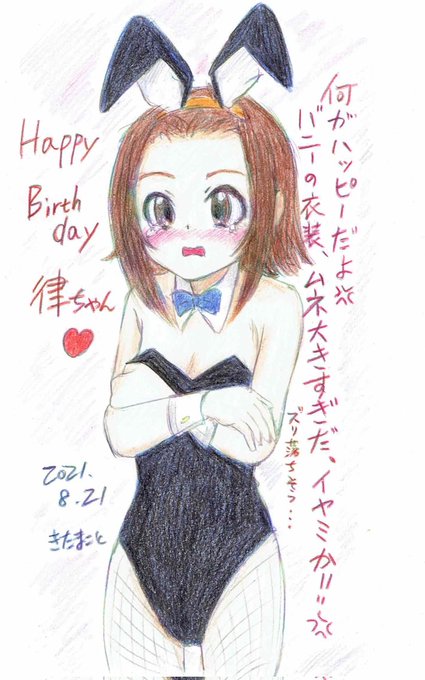 Happy
Birth
day
律ちゃん
何がハッピーだよ
バニーの衣装、ムネ大きすぎだ、イヤミか!!
ズリ落ちそう…
2021.
8.21
きたまこと